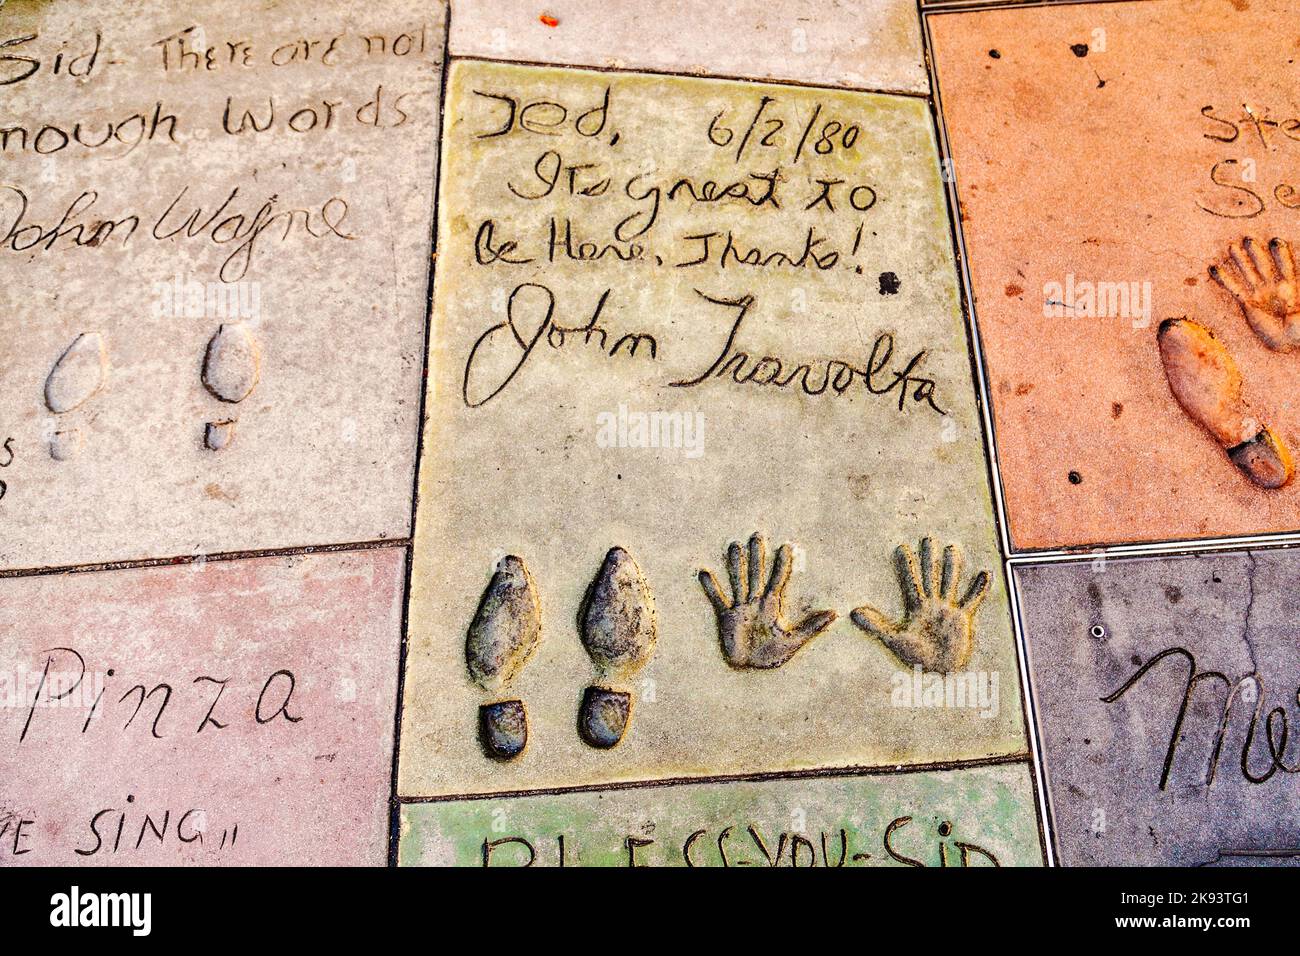 Sid - There are not
nough Words
John Wayne
Ted, 6/2/80
It's great to
Be Here, Thanks!
John Travolta
Ste
Se
Pinza
VE SING"
BLESS-YOU-SID
Me
alamy
Image ID: 2K93TG1
www.alamy.com